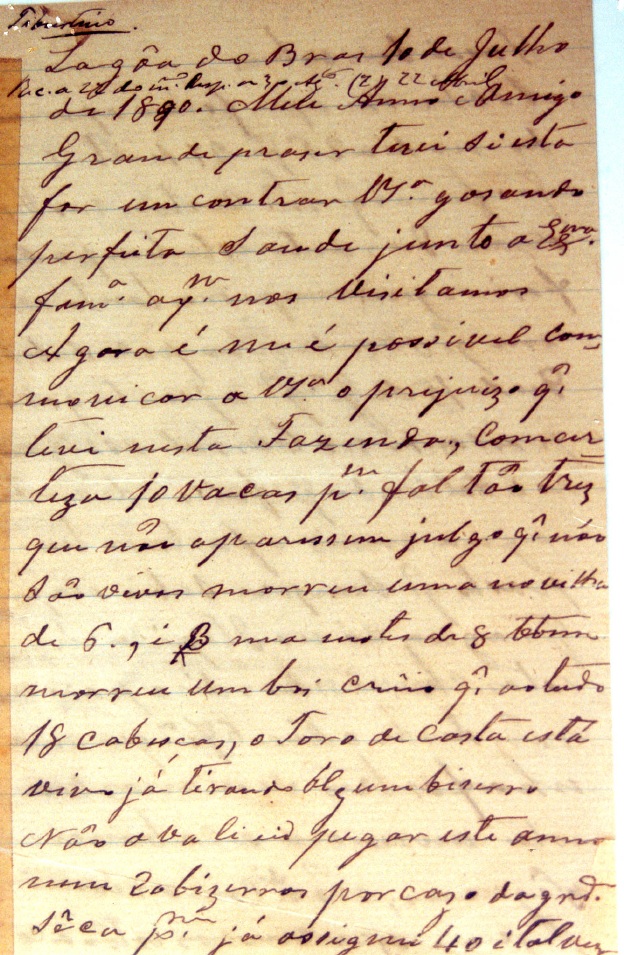 Tiburtino.
Lagôa do Braz 10 de Julho
Rec. a 27 do m.mo Resp. a 3 (2 y 22 Abril
de 1890. Meu Amo e Amigo
Grande praser terei si esta
for em contrar V.Sª gosando
perfeita Saude junto a Exma.
famª. a q.m nos visitamos
Agora é me é possivel com
monicar a V.Sª o prejuizo q.
tevi nesta Fazenda., Comcer
teza 10 vacas p.m faltão trez
que não aparessem julgo q. não
são vivas morreu uma novilha
de 6., i 3 ma motes de 8
morreu um boi crûio q. ao tudo
18 cabescas, o Toro de Costa está
vivo já tirando um biserro
Não avaliei pegar este anno
nem 20 bizerros por cazo da grd.
Sêca p.m já assignei 40 i talvez